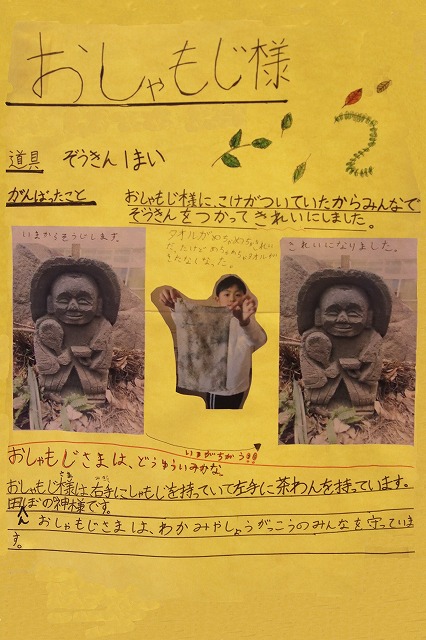 おしゃもじ様
道具 ぞうきん1まい
がんばったこと
おしゃもじ様に、こけがついていたからみんなで
ぞうきんをつかってきれいにしました。
いまからそうじします。
タオルがめちゃめちゃきれい
だったけどめちゃめちゃタオルが
きたなくなった。
きれいになりました。
いまがちがう!!
おしゃもじさまは、どうゆういみかな。
おしゃもじ様は右手にしゃもじを持っていて左手に茶わんを持っています。
田んぼの神様です。
おしゃもじさまは、わかみやしょうがっこうのみんなを守っていま
す。